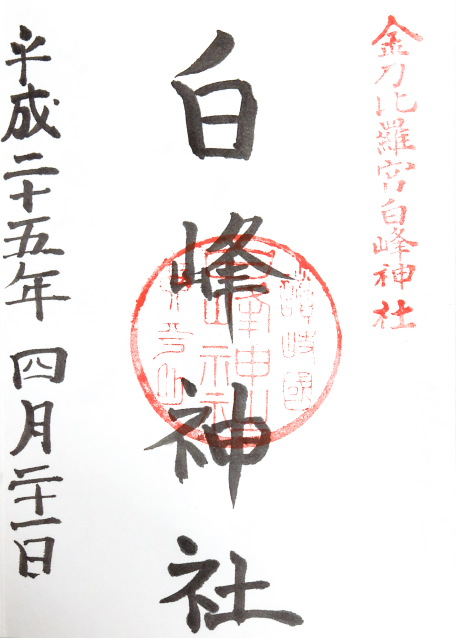 金刀比羅宮白峰神社
白峰神社
讃岐國
平成二十五年 四月二十一日